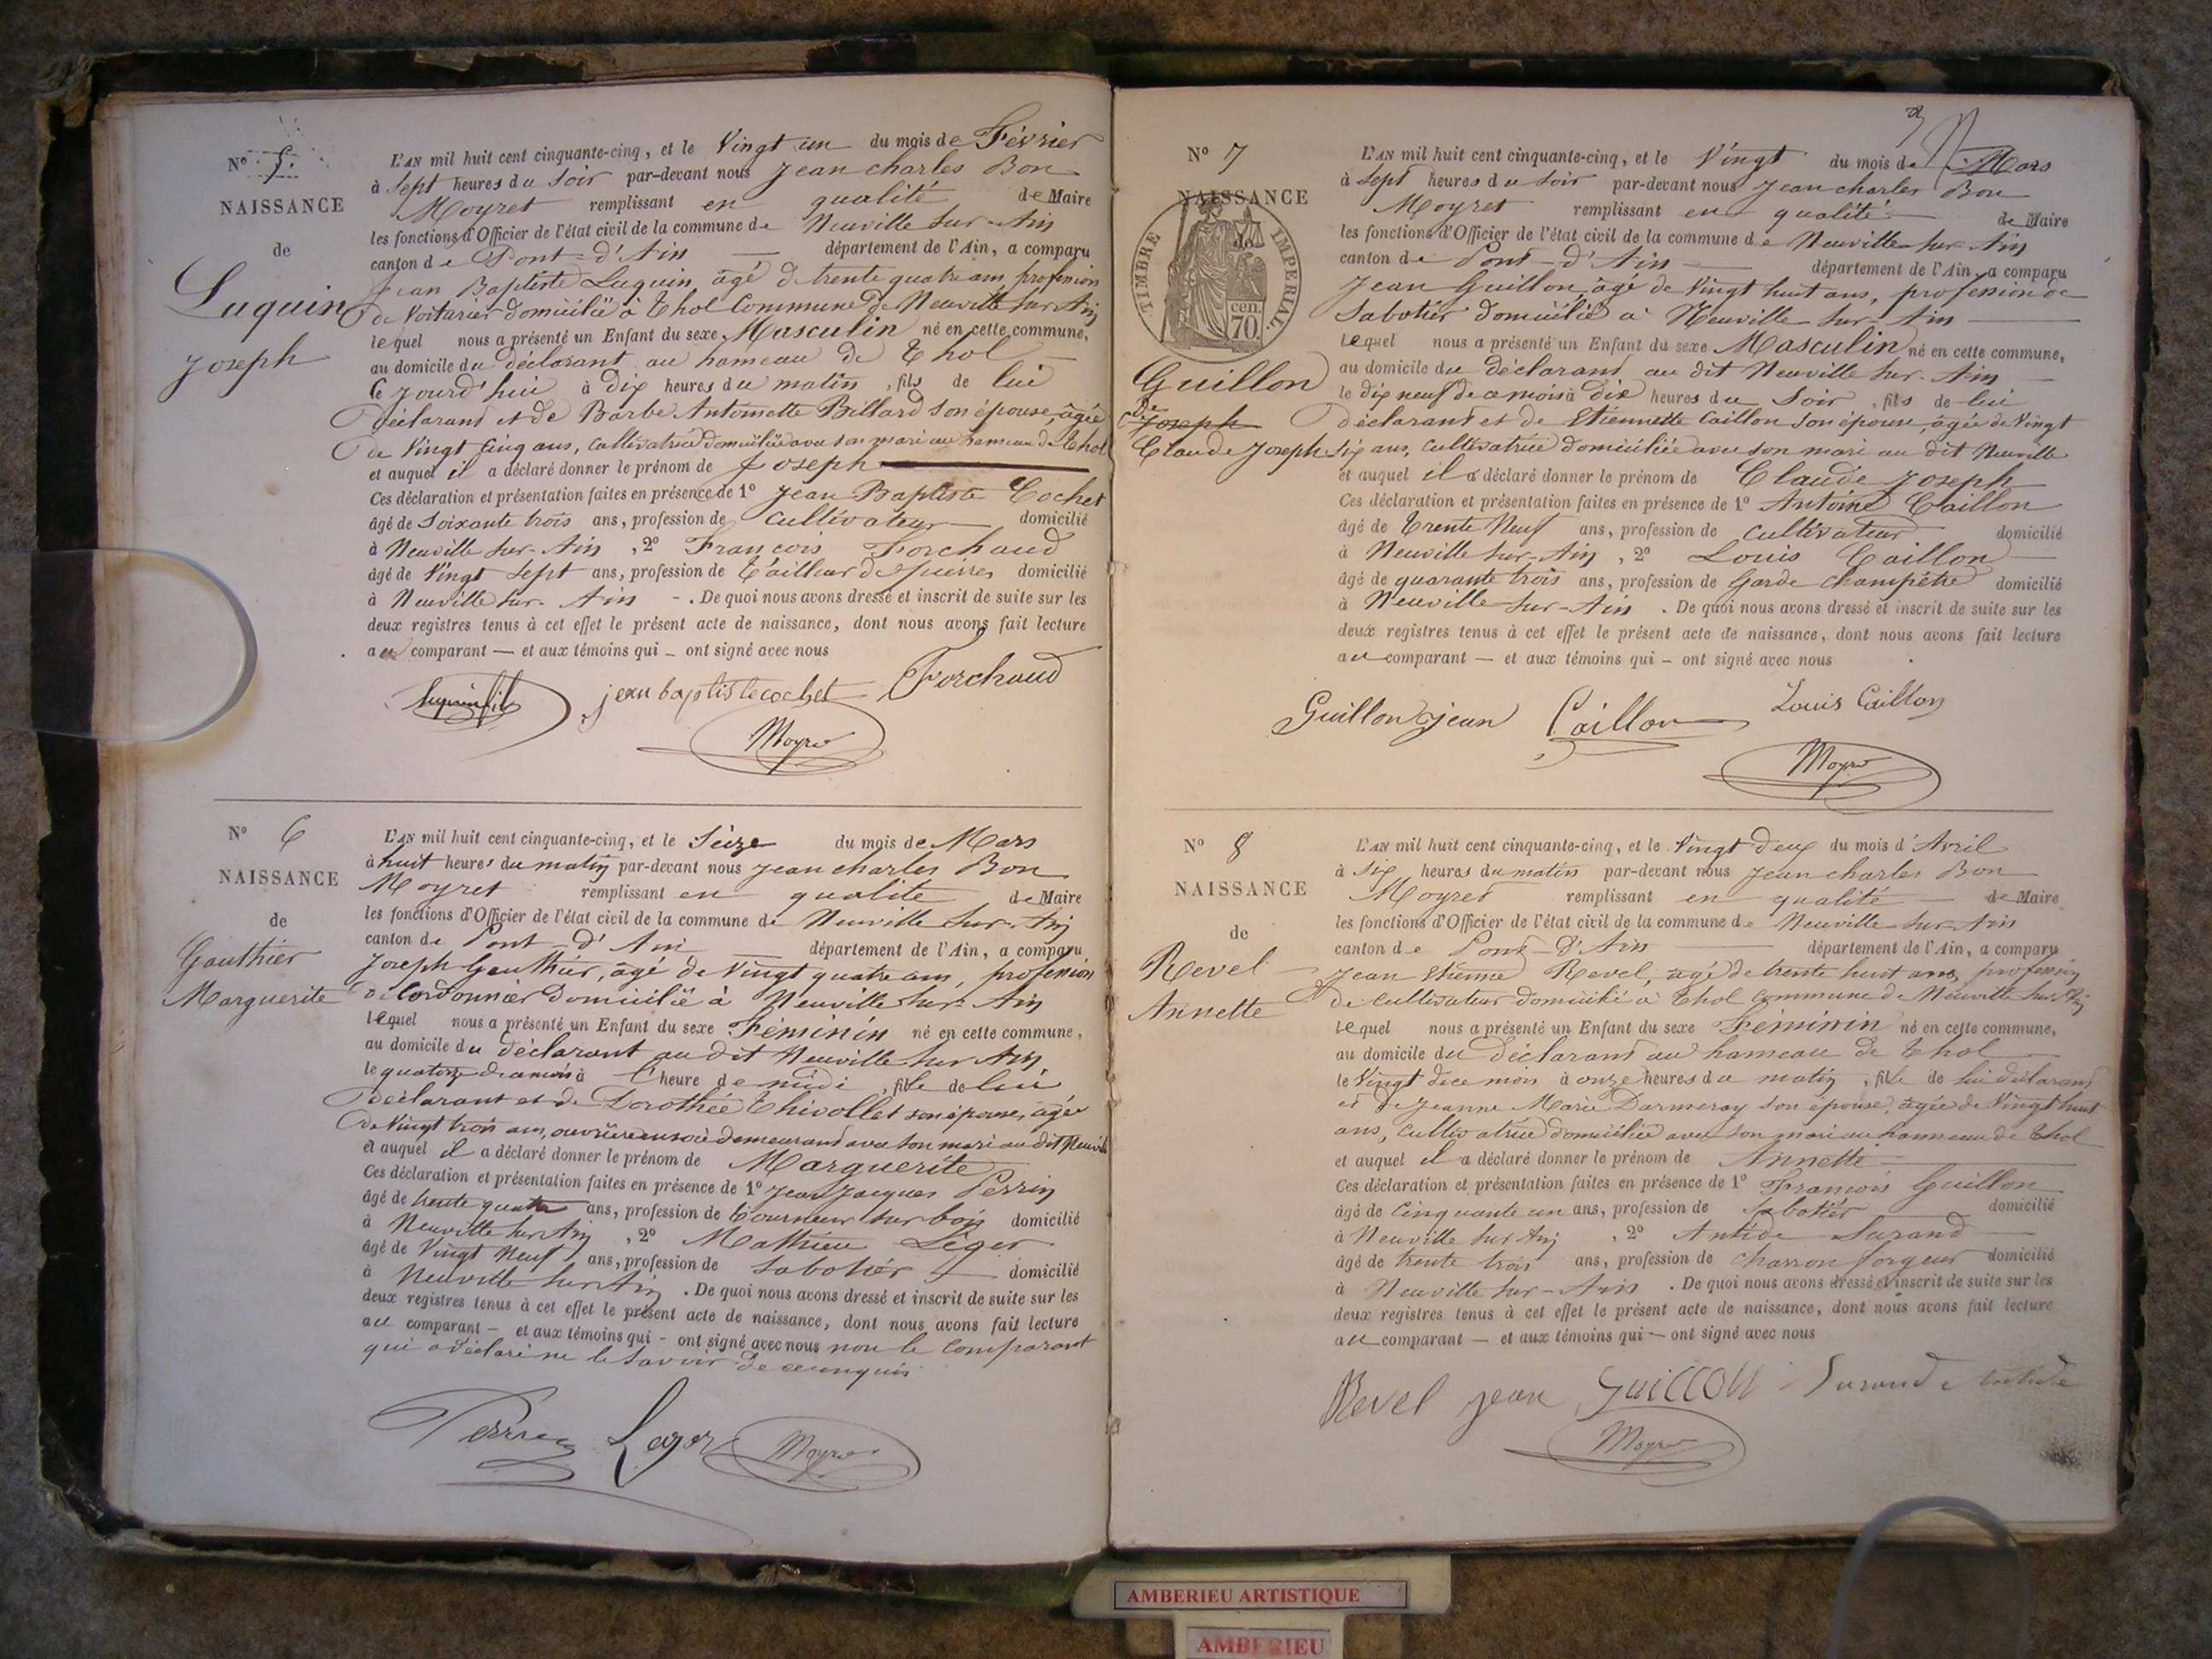 N° 5.
NAISSANCE
de
Luquin
Joseph
L'AN mil huit cent cinquante-cinq, et le Vingt un du mois de Février
à Sept heures du Soir par-devant nous Jean charles Bon
Moyret remplissant en qualité de Maire
les fonctions d'Officier de l'état civil de la commune de Neuville sur Ain
canton de Pont-d'Ain — département de l'Ain, a comparu
Jean Baptiste Luquin, âgé de trente quatre ans, profession
de Voiturier domicilié à Thol Commune de Neuville sur Ain
lequel nous a présenté un Enfant du sexe Masculin né en cette commune,
au domicile du déclarant au hameau de Thol —
Ce jourd'hui à dix heures du matin, fils de lui
déclarant et de Barbe Antoinette Billard son épouse, âgée
de Vingt Cinq ans, cultivatrice domiciliée avec son mari au hameau de Thol
et auquel il a déclaré donner le prénom de Joseph
Ces déclaration et présentation faites en présence de 1° Jean Baptiste Cochet
âgé de Soixante trois ans, profession de Cultivateur — domicilié
à Neuville Sur-Ain, 2° François Forchaud
âgé de Vingt Sept ans, profession de Tailleur de pierres domicilié
à Neuville Sur-Ain - . De quoi nous avons dressé et inscrit de suite sur les
deux registres tenus à cet effet le présent acte de naissance, dont nous avons fait lecture
au comparant — et aux témoins qui — ont signé avec nous
Luquin fils jean baptiste cochet Forchaud
Moyret
N° 6
NAISSANCE
de
Gauthier
Marguerite
L'AN mil huit cent cinquante-cinq, et le Seize du mois de Mars
à huit heures du matin par-devant nous Jean charles Bon
Moyret remplissant en qualité de Maire
les fonctions d'Officier de l'état civil de la commune de Neuville Sur-Ain
canton de Pont-d'Ain — département de l'Ain, a comparu
Joseph Gauthier, âgé de Vingt quatre ans, profession
de Cordonnier domicilié à Neuville Sur-Ain
lequel nous a présenté un Enfant du sexe Féminin né en cette commune,
au domicile du déclarant au dit Neuville Sur Ain
le quatorze de ce mois à l'heure de midi, fille de lui
déclarant et de Dorothée Thivollet son épouse, âgée
de Vingt trois ans, ouvrière en soie demeurant avec son mari au dit Neuville
et auquel il a déclaré donner le prénom de Marguerite
Ces déclaration et présentation faites en présence de 1° Jean Jacques Perrin
âgé de trente quatre ans, profession de Tourneur sur bois domicilié
à Neuville Sur Ain, 2° Mathieu Léger
âgé de Vingt Neuf ans, profession de Sabotier — domicilié
à Neuville Sur Ain . De quoi nous avons dressé et inscrit de suite sur les
deux registres tenus à cet effet le présent acte de naissance, dont nous avons fait lecture
au comparant — et aux témoins qui - ont signé avec nous non le Comparant
qui a déclaré ne le Savoir de ce enquis
Perrin Leger Moyret
N° 7
NAISSANCE
de
TIMBRE IMPERIAL.
cen. 70.
Guillon
de
Joseph
Claude Joseph
L'AN mil huit cent cinquante-cinq, et le Vingt du mois de Mars
à Sept heures du Soir par-devant nous Jean charles Bon
Moyret remplissant en qualité — de Maire
les fonctions d'Officier de l'état civil de la commune de Neuville Sur-Ain
canton de Pont-d'Ain — département de l'Ain, a comparu
Jean Guillon, âgé de Vingt huit ans, profession de
Sabotier domicilié à Neuville Sur-Ain —
lequel nous a présenté un Enfant du sexe Masculin né en cette commune,
au domicile du déclarant au dit Neuville Sur-Ain —
le dix neuf de ce mois à dix heures du Soir, fils de lui
déclarant et de Etiennette Caillon son épouse, âgée de Vingt
Six ans, cultivatrice domiciliée avec son mari au dit Neuville
et auquel il a déclaré donner le prénom de Claude Joseph
Ces déclaration et présentation faites en présence de 1° Antoine Caillon
âgé de trente Neuf ans, profession de Cultivateur domicilié
à Neuville Sur-Ain, 2° Louis Caillon —
âgé de quarante trois ans, profession de Garde champêtre domicilié
à Neuville Sur-Ain . De quoi nous avons dressé et inscrit de suite sur les
deux registres tenus à cet effet le présent acte de naissance, dont nous avons fait lecture
au comparant — et aux témoins qui — ont signé avec nous
Guillon jean Caillon Louis Caillon
Moyret
N° 8
NAISSANCE
de
Revel
Annette
L'AN mil huit cent cinquante-cinq, et le Vingt deux du mois d'Avril
à Six heures du matin par-devant nous Jean charles Bon
Moyret remplissant en qualité — de Maire
les fonctions d'Officier de l'état civil de la commune de Neuville Sur-Ain
canton de Pont-d'Ain — département de l'Ain, a comparu
Jean Etienne Revel, âgé de trente huit ans, profession
de cultivateur domicilié à Thol Commune de Neuville Sur Ain
lequel nous a présenté un Enfant du sexe Féminin né en cette commune,
au domicile du déclarant au hameau de Thol —
le Vingt de ce mois à onze heures du matin, fille de lui déclarant
et de Jeanne Marie Darmeray son épouse, âgée de Vingt huit
ans, cultivatrice domiciliée avec son mari au hameau de Thol
et auquel il a déclaré donner le prénom de Annette —
Ces déclaration et présentation faites en présence de 1° François Guillon
âgé de Cinquante un ans, profession de Sabotier — domicilié
à Neuville Sur Ain, 2° Antide Durand —
âgé de trente trois ans, profession de charron forgeur domicilié
à Neuville Sur-Ain . De quoi nous avons dressé et inscrit de suite sur les
deux registres tenus à cet effet le présent acte de naissance, dont nous avons fait lecture
au comparant — et aux témoins qui — ont signé avec nous
Revel jean GUILLON Durand antide
Moyret
AMBERIEU ARTISTIQUE
AMBERIEU